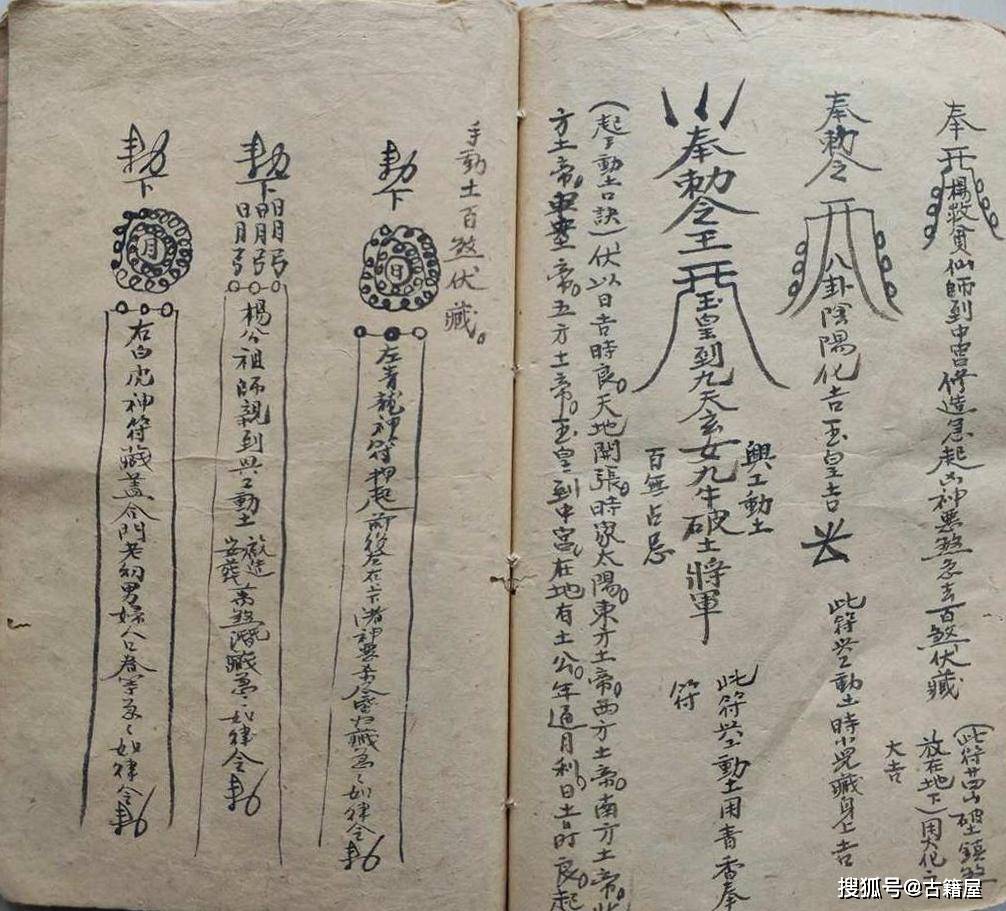 奉 楊救貧仙師到中宮修造急起凶神惡煞急去百煞伏藏
(此符廿四山破土鎮煞
放在地下用火化之
大吉
奉勅令 八卦陰陽化吉玉皇吉
此符興工動土時小兒藏身上吉
奉勅令 玉皇到九天玄女九牛破土將軍
興工動土
百無占忌
此符興工動土用青香奉
符
(起手動土口訣)伏以日吉時良。天地開張。時家太陽。東方土帝。西方土帝。南方土帝。北
方土帝。中央土帝。五方土帝。玉皇到中宮。在地有土公。年通月利。日吉時良。起
手動土百煞伏藏。
勅下 日 左青龍神符押起前後左右
急急如律令勅
勅下 日月日月日月 楊公祖師親到興工動土
安葬
急急如律令勅
勅下 月 右白虎神符藏蓋合門老幼男婦人口眷等急急如律令勅
搜狐号@古籍屋